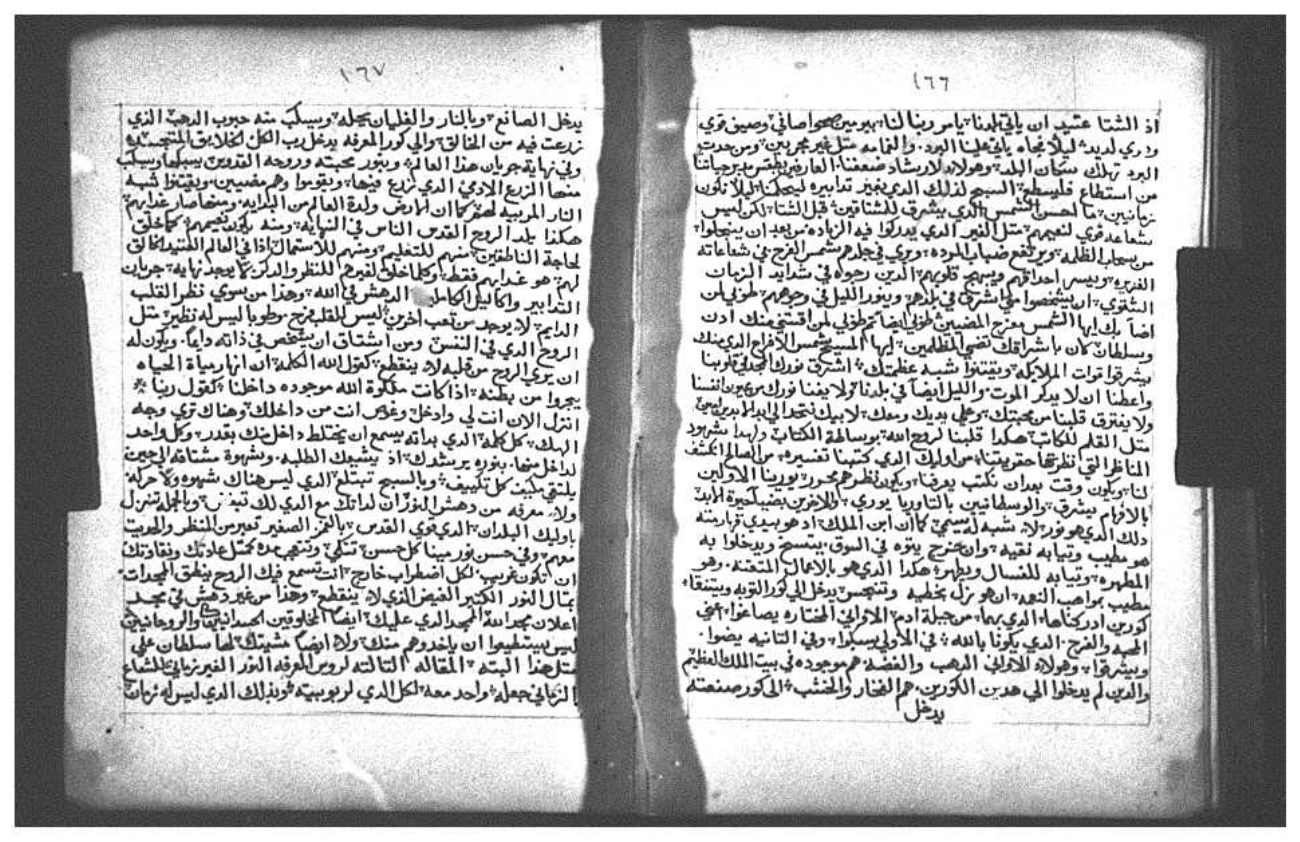 ١٦٦
اذ الشتا عتيد ان ياتي بلدنا يامر ربنا لنا بيومين صحو صافي وصيف قوي
ودري لديد ليلا نجاه ياتي علينا البرد والغمامه مثل غير مجربين ومن حدت
البرد تهلك سكان البلد وهولاي لارشاد ضعفنا العارفين بطقس سير حياتنا
من استطاع فليسطع السبح لذلك الذي بغير تدابيره ليحكمنا ليلا نكون
زمانيين ما احسن الشمس الذي يشرق للشتاقين قبل الشتا لكن ليس
شعاعه قوي لنعيمهم مثل الغير الذي يدركوا فيه الزياده من بعد ان ينحلوا
من سحاب الظلمه ويرتفع ضباب الموده ويري في جلدهم شمس الفرح في شعاعاته
الغزيره ويسر احداقهم ويبهج قلوبهم الدين رجوه في شدايد الزمان
الشتوي ان يشخصوا متي اشرق في بلدهم وينور الليل في وجوههم طوبي لمن
اضا بك ايها الشمس مفرح المضيين طوبي ايضا ثم طوبي لمن اقتني منك ادن
وسلطان كان باشراقك تضي المظلمين ايها المسيح شمس الافراح الدي منك
يشرقوا قوات الملايكه ويقتنوا شبه عظمتك اشرق نورك المجدلي قلوبنا
واعطنا ان لا يدكر الموت والليل ايضا في بلدنا ولا يفنا نورك من عيون انفسنا
ولا يفترق قلبنا من محبتك وعلي يديك ومعك لابيك نتحد الي ابد الابدين امين
مثل القلم للكاتب هكدا قلبنا لروح الله بوساطة الكتاب ولهدا نشهود
المناظر التي نظرتها حقريتنا من اوليك الدي كتبنا تفسيره من الصالح انكشف
لنا ويكون وقت بعدان نكتب يعرفنا ويكون نظرهم محرر بورينا الاولين
بالافهام يشرق والوسطانيين بالتاوريا يوري والاخرين بضيا حيرة الابد
دلك الدي هو نور لا شبه له يسمي كما ان ابن الملك اد هو بيدي قهارمته
هو مطيب وتيابه نقيه وان خرج يتوه في السوق يتسخ ويدخلوا به
المطهره وتيابه للغسال ويطهر هكدا الدي هو بالاعمال المتقنه وهو
مطيب بمواهب النعمه ان هو نزل بخطيه وتنجس يدخل الي كور التوبه ويتنقا
كورين ادركناها الدي بهما من جبلة ادم الاواني المختاره يصاغوا اعني
المحبه والفرح الدي يكونا بالله في الاولي يسبكوا وفي التانيه يضوا
ويشرقوا وهولاي الاواني الدهب والفضه هم موجوده في بيت الملك العظيم
والدين لم يدخلوا الي هدين الكورين هم الفخار والخشب الي كور صنعته
يدخل
١٦٧
يدخل الصانع وبالنار والغليان يحله ويسبك منه حبوب الدهب الذي
زرعت فيه من الخالق والي كور المعرفه يدخل رب الكل الخلايق المتجسده
وفي نهاية جريان هذا العالم وبنور محبته وروحه القدوس يسبكها ويسبك
منها الزرع الادمي الدي زرع فيها ويقوموا وهم مضيين ويقتنوا شبه
النار المربيه لهم كما ان الارض ولدة العالم من البدايه ومنها صار غداهم
هكذا يلد الروح القدس الناس في النهايه ومنه يكون نعيمهم كما خلق
لحاجة الناطقين منهم للتعليم ومنهم للاستعمال اذا في العالم العتيد الخالق
لهم هو غداهم فقط وكلما خلق لغيرهم للنظر والدكر كما يوجد نهايه جريان
التدابير واكاليل الكاملين الدهش في الله وهذا من سوي نظر القلب
الدايم لا يوجد من تعب اخرين ليس للقلب فرح وطوبا ليس له نظير مثل
الروح الدي في النفس ومن اشتاق ان يشخص في ذاته دايما ويكون له
ان يري الروح من قلبه لا ينقطع كقول الله الكلمه ان انهار مياة الحياه
يجروا من بطنه اذا كانت ملكوة الله موجوده داخلنا كقول ربنا
انزل الان انت لي وادخل وغوص انت من داخلك وهناك تري وجه
الهك كل كلمة الدي بداته يسمع ان يختلط داخل منك بقدر وكل واحد
لداخل منها بنوره يرشدك اذ يشبعك الطلبه وبشهوة مشتاقه الي حين
يلتقي مكيف كل تكييف وبالسبح تبتلع الدي ليس هناك شهوه ولا حركه
ولا معرفه من دهش النور ان لداتك مع الدي لك تميزن وبالجمله تنزل
باوليك البلدان الدي قوي القدس بالغز الصغير تعبر من المنظر والحريت
معهم وفي حسن نور مينا كل حسن تتكي وتتجي مده كمثل عادتك ونقاوتك
ان تكون غريب لكل اضطراب خارج انت تسمع فيك الروح ينطق المجدات
بمثال النور الكتير الفيض الذي لا ينقطع وهذا من غير دهش في مجد
اعلان مجد الله المجد الدي عليك ايضا المخلوقين الجسدانيين والروحانيين
ليس يستطيعوا ان ياخدوهم منك ولا ايضا مشيتك لها سلطان علي
مثل هذا البته المقاله التالته لروس المعرفه النور الغير زماني المشاع
الزماني جعله واحد معه لكل الدي لربوبيته وبدلك الدي ليس له زمان